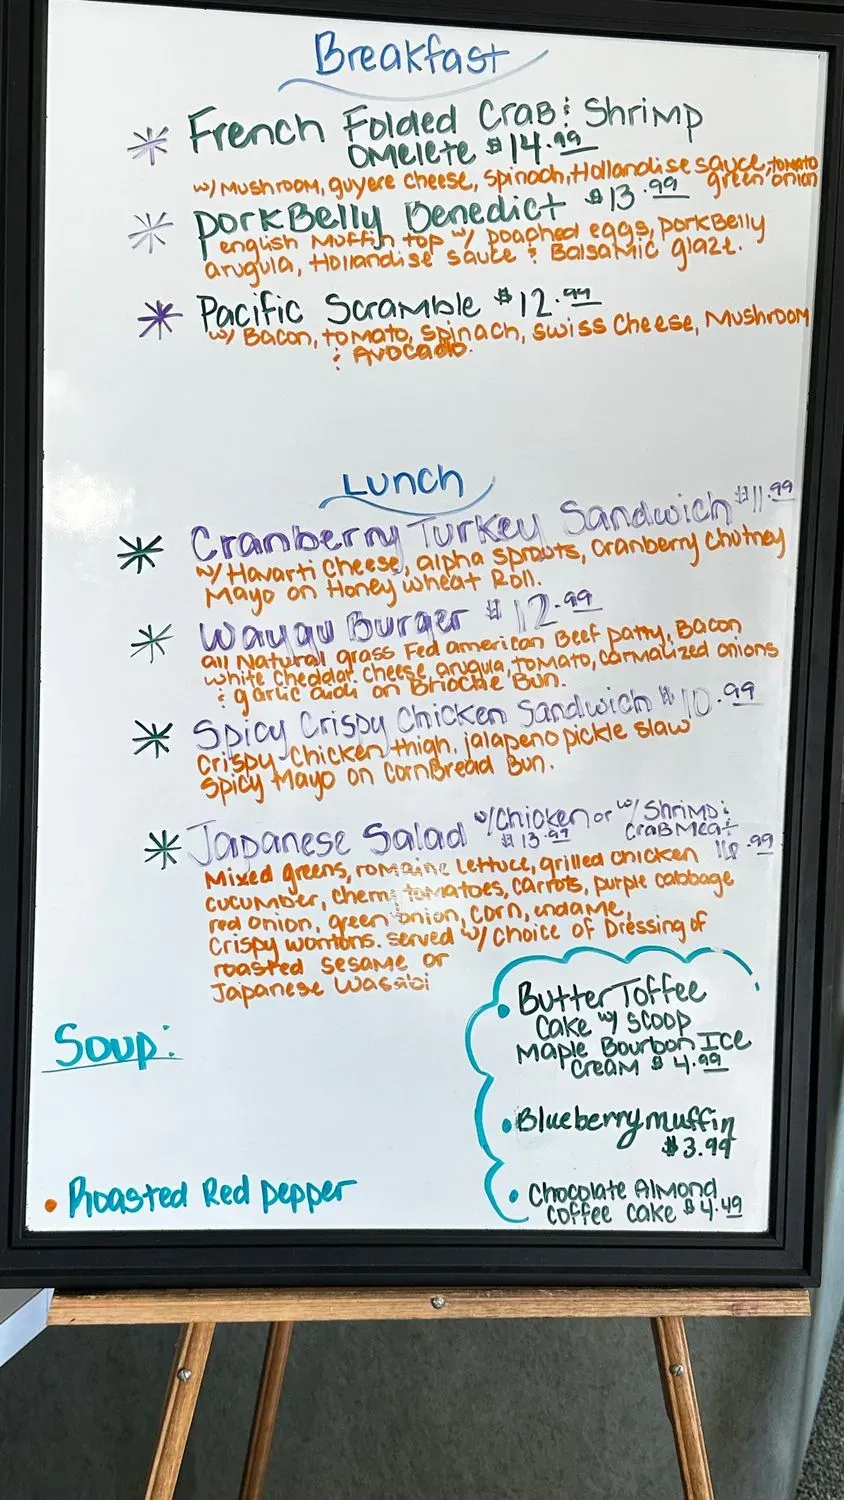 Breakfast
French Folded Crab & Shrimp
Omelete $14.99
w/ Mushroom, guyere cheese, spinach, Hollandise sauce, tomato
green onion
PorkBelly Benedict $13.99
english Muffin top w/ poached eggs, porkBelly
arugula, Hollandise sauce & Balsamic glaze.
Pacific Scramble $12.99
w/ Bacon, tomato, spinach, swiss Cheese, Mushroom
& Avocado.
Lunch
Cranberry Turkey Sandwich $11.99
w/ Havarti Cheese, alpha sprouts, Cranberry Chutney
Mayo on Honey wheat Roll.
Waygu Burger $12.99
all Natural grass Fed american Beef patty, Bacon
white Cheddar cheese, arugula, tomato, carmalized onions
& garlic aioli on Brioche Bun.
Spicy Crispy Chicken Sandwich $10.99
Crispy Chicken thigh, jalapeno pickle slaw
Spicy Mayo on CornBread Bun.
Japanese Salad w/ Chicken or w/ Shrimp &
$13.99 CrabMeat
.99
Mixed greens, romaine Lettuce, grilled chicken
cucumber, cherry tomatoes, carrots, purple cabbage
red onion, green onion, corn, endame,
Crispy wontons. served w/ choice of Dressing of
roasted sesame or
Japanese Wasabi
Soup:
Roasted Red pepper
Butter Toffee
Cake w/ scoop
Maple Bourbon Ice
Cream $4.99
Blueberry muffin
$3.99
Chocolate Almond
coffee cake $4.49